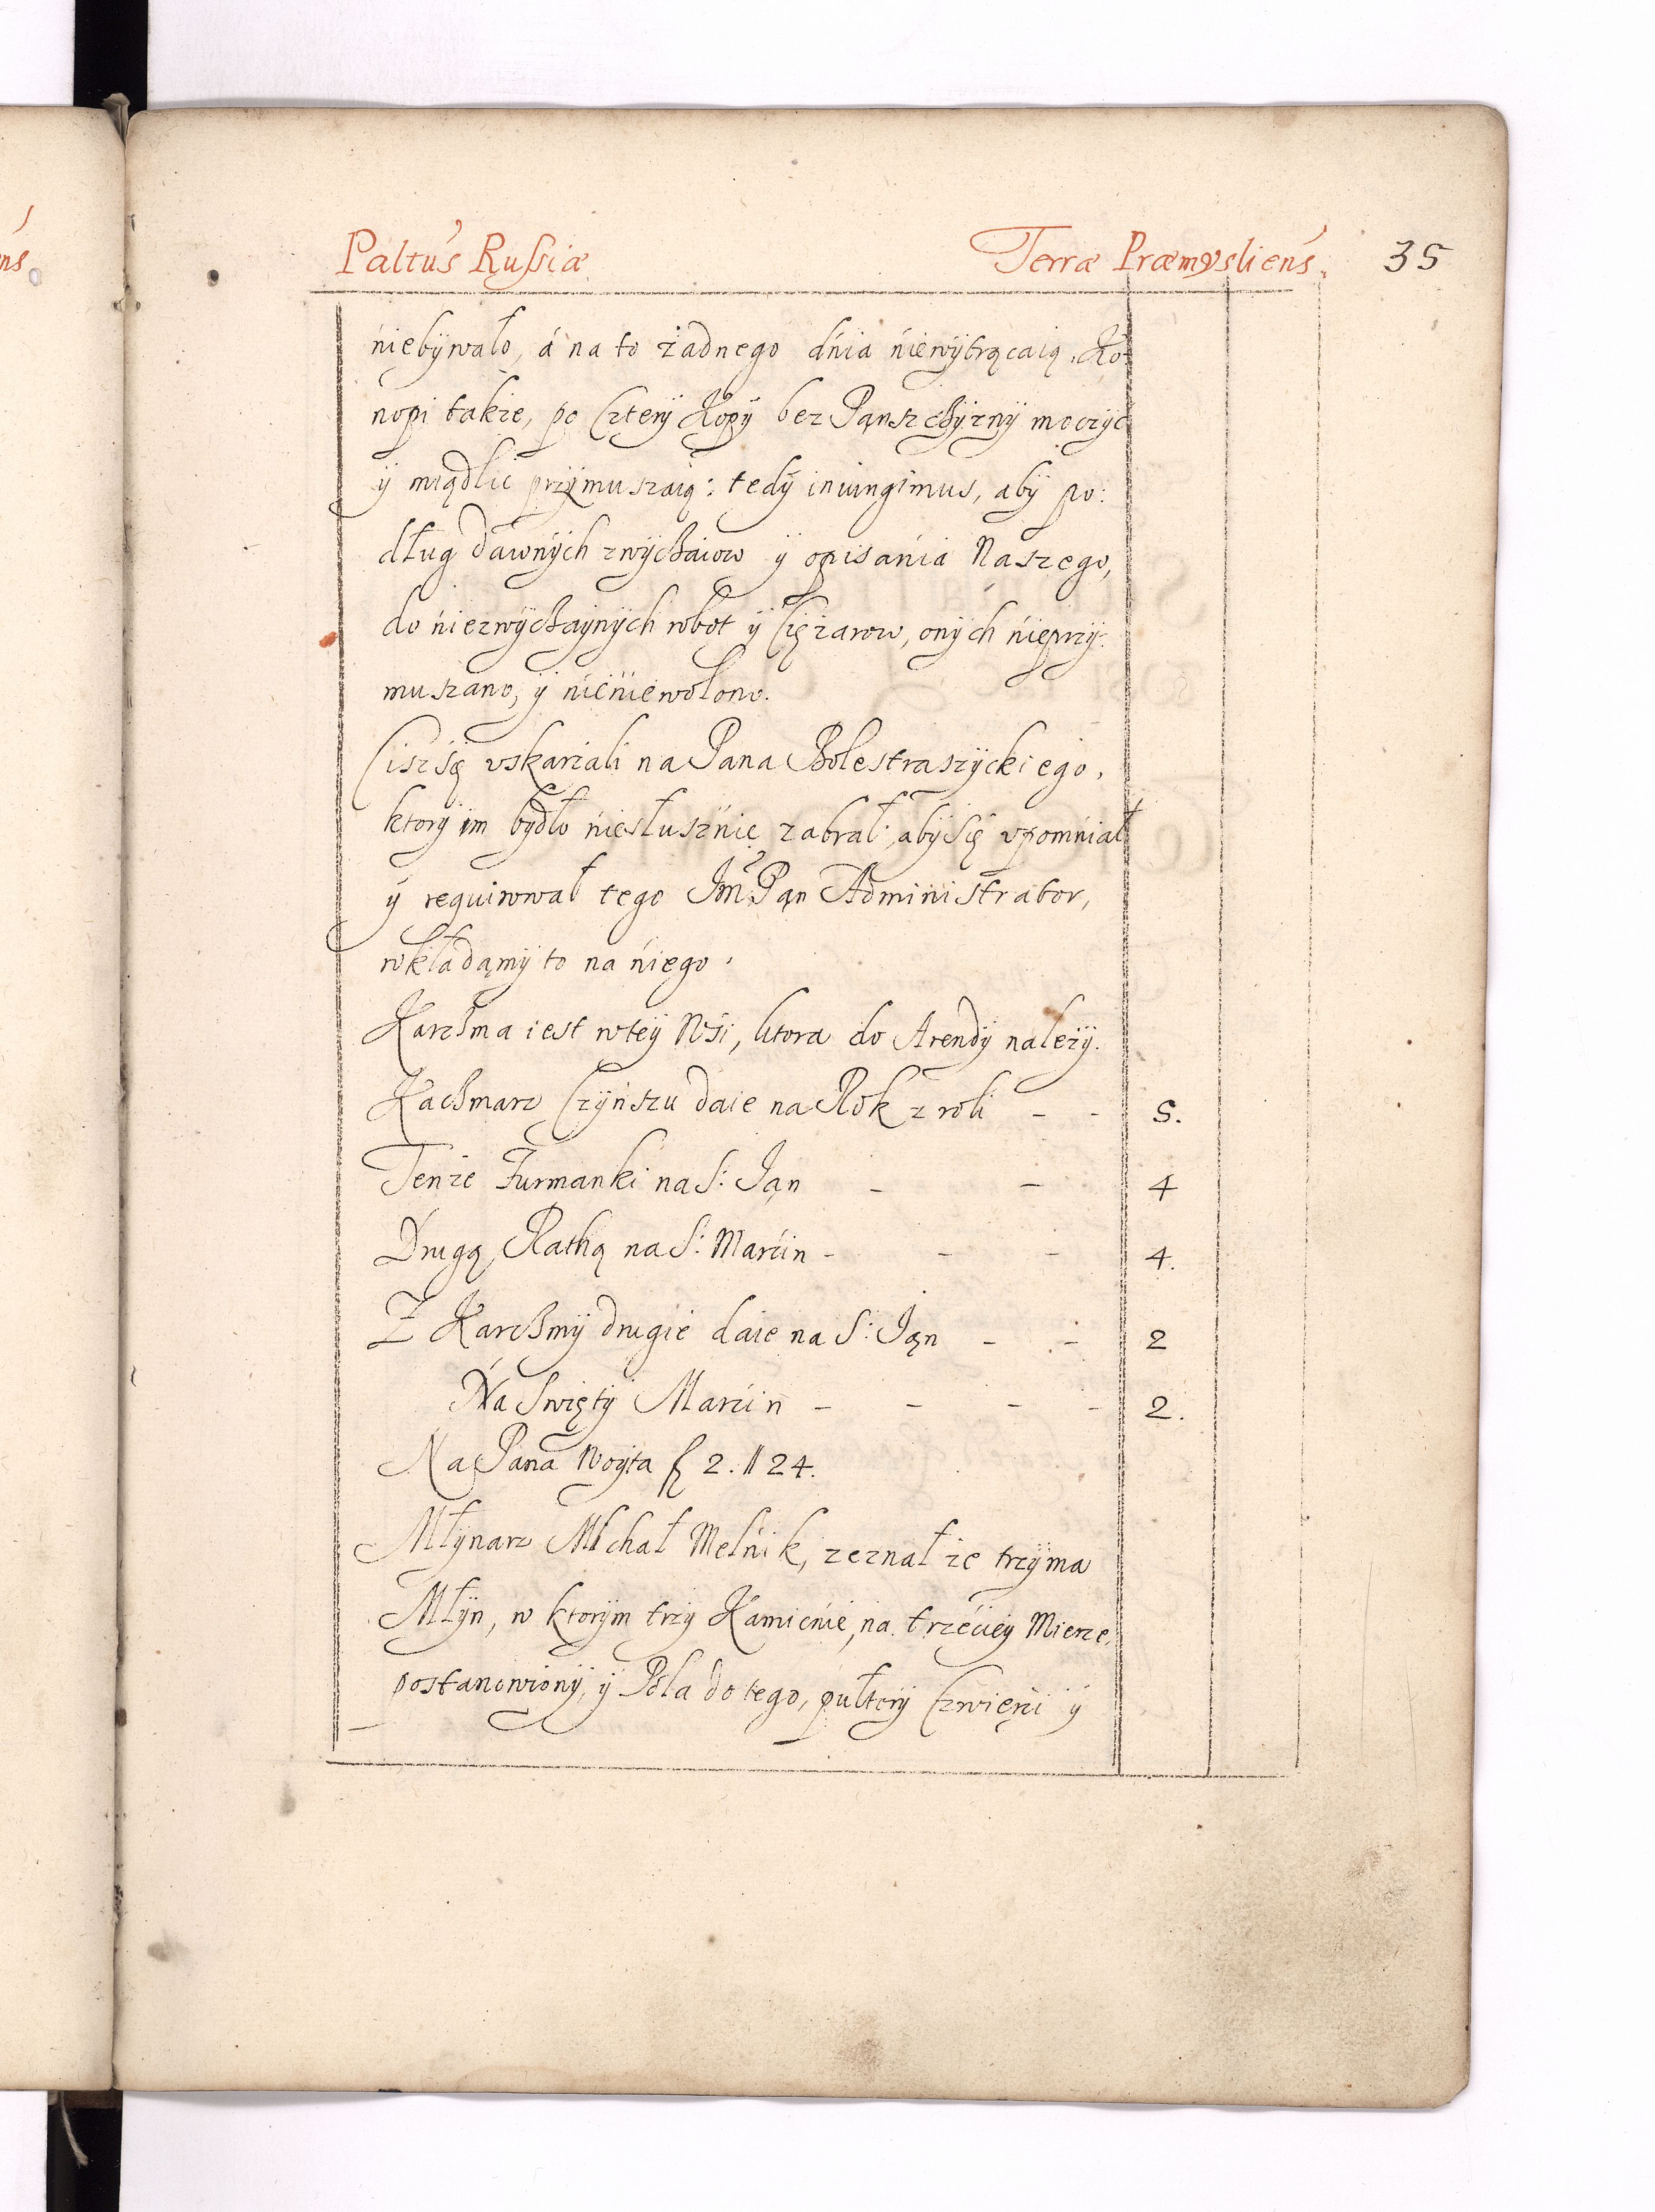 Paltus Russiæ Terræ Præmysliens. 35
niebywało, á na to żadnego dnia niewytrącaią. Ko-
nopi także, po Cztery Kopy bez Panszchyzny moczyć
y miądlić przymuszaią: tedy iniungimus, aby po:
dług dawnych zwychaiow y opisania Naszego,
do niezwychaynych robot y Ciężarow, onych nieprzy-
muszano, y nieniewolono.
Cisz się vskarżali na Pana Bolestraszyckiego,
ktory im bydło niesłusznie zabrał: aby się vpomniał
y requirował tego Im. Pan Administrator,
wkładamy to na niego.
Karchma iest w tey Wsi, ktora do Arendy należy.
Kachmarz Czynszu daie na Rok z roli - - 5.
Tenże Furmanki na S: Ian - - 4
Drugą Rathą na S: Marcin - - - 4.
Z Karchmy drugie daie na S: Ian - - 2
Na Swięty Marcin - - - - 2.
Na Pana Woyta f 2. 11 24.
Młynarz Michał Melnik, zeznał że trzyma
Młyn, w ktorym trzy Kamienie, na trzeciey Mierze,
postanowiony, y Pola do tego, pułtory Czwierci y